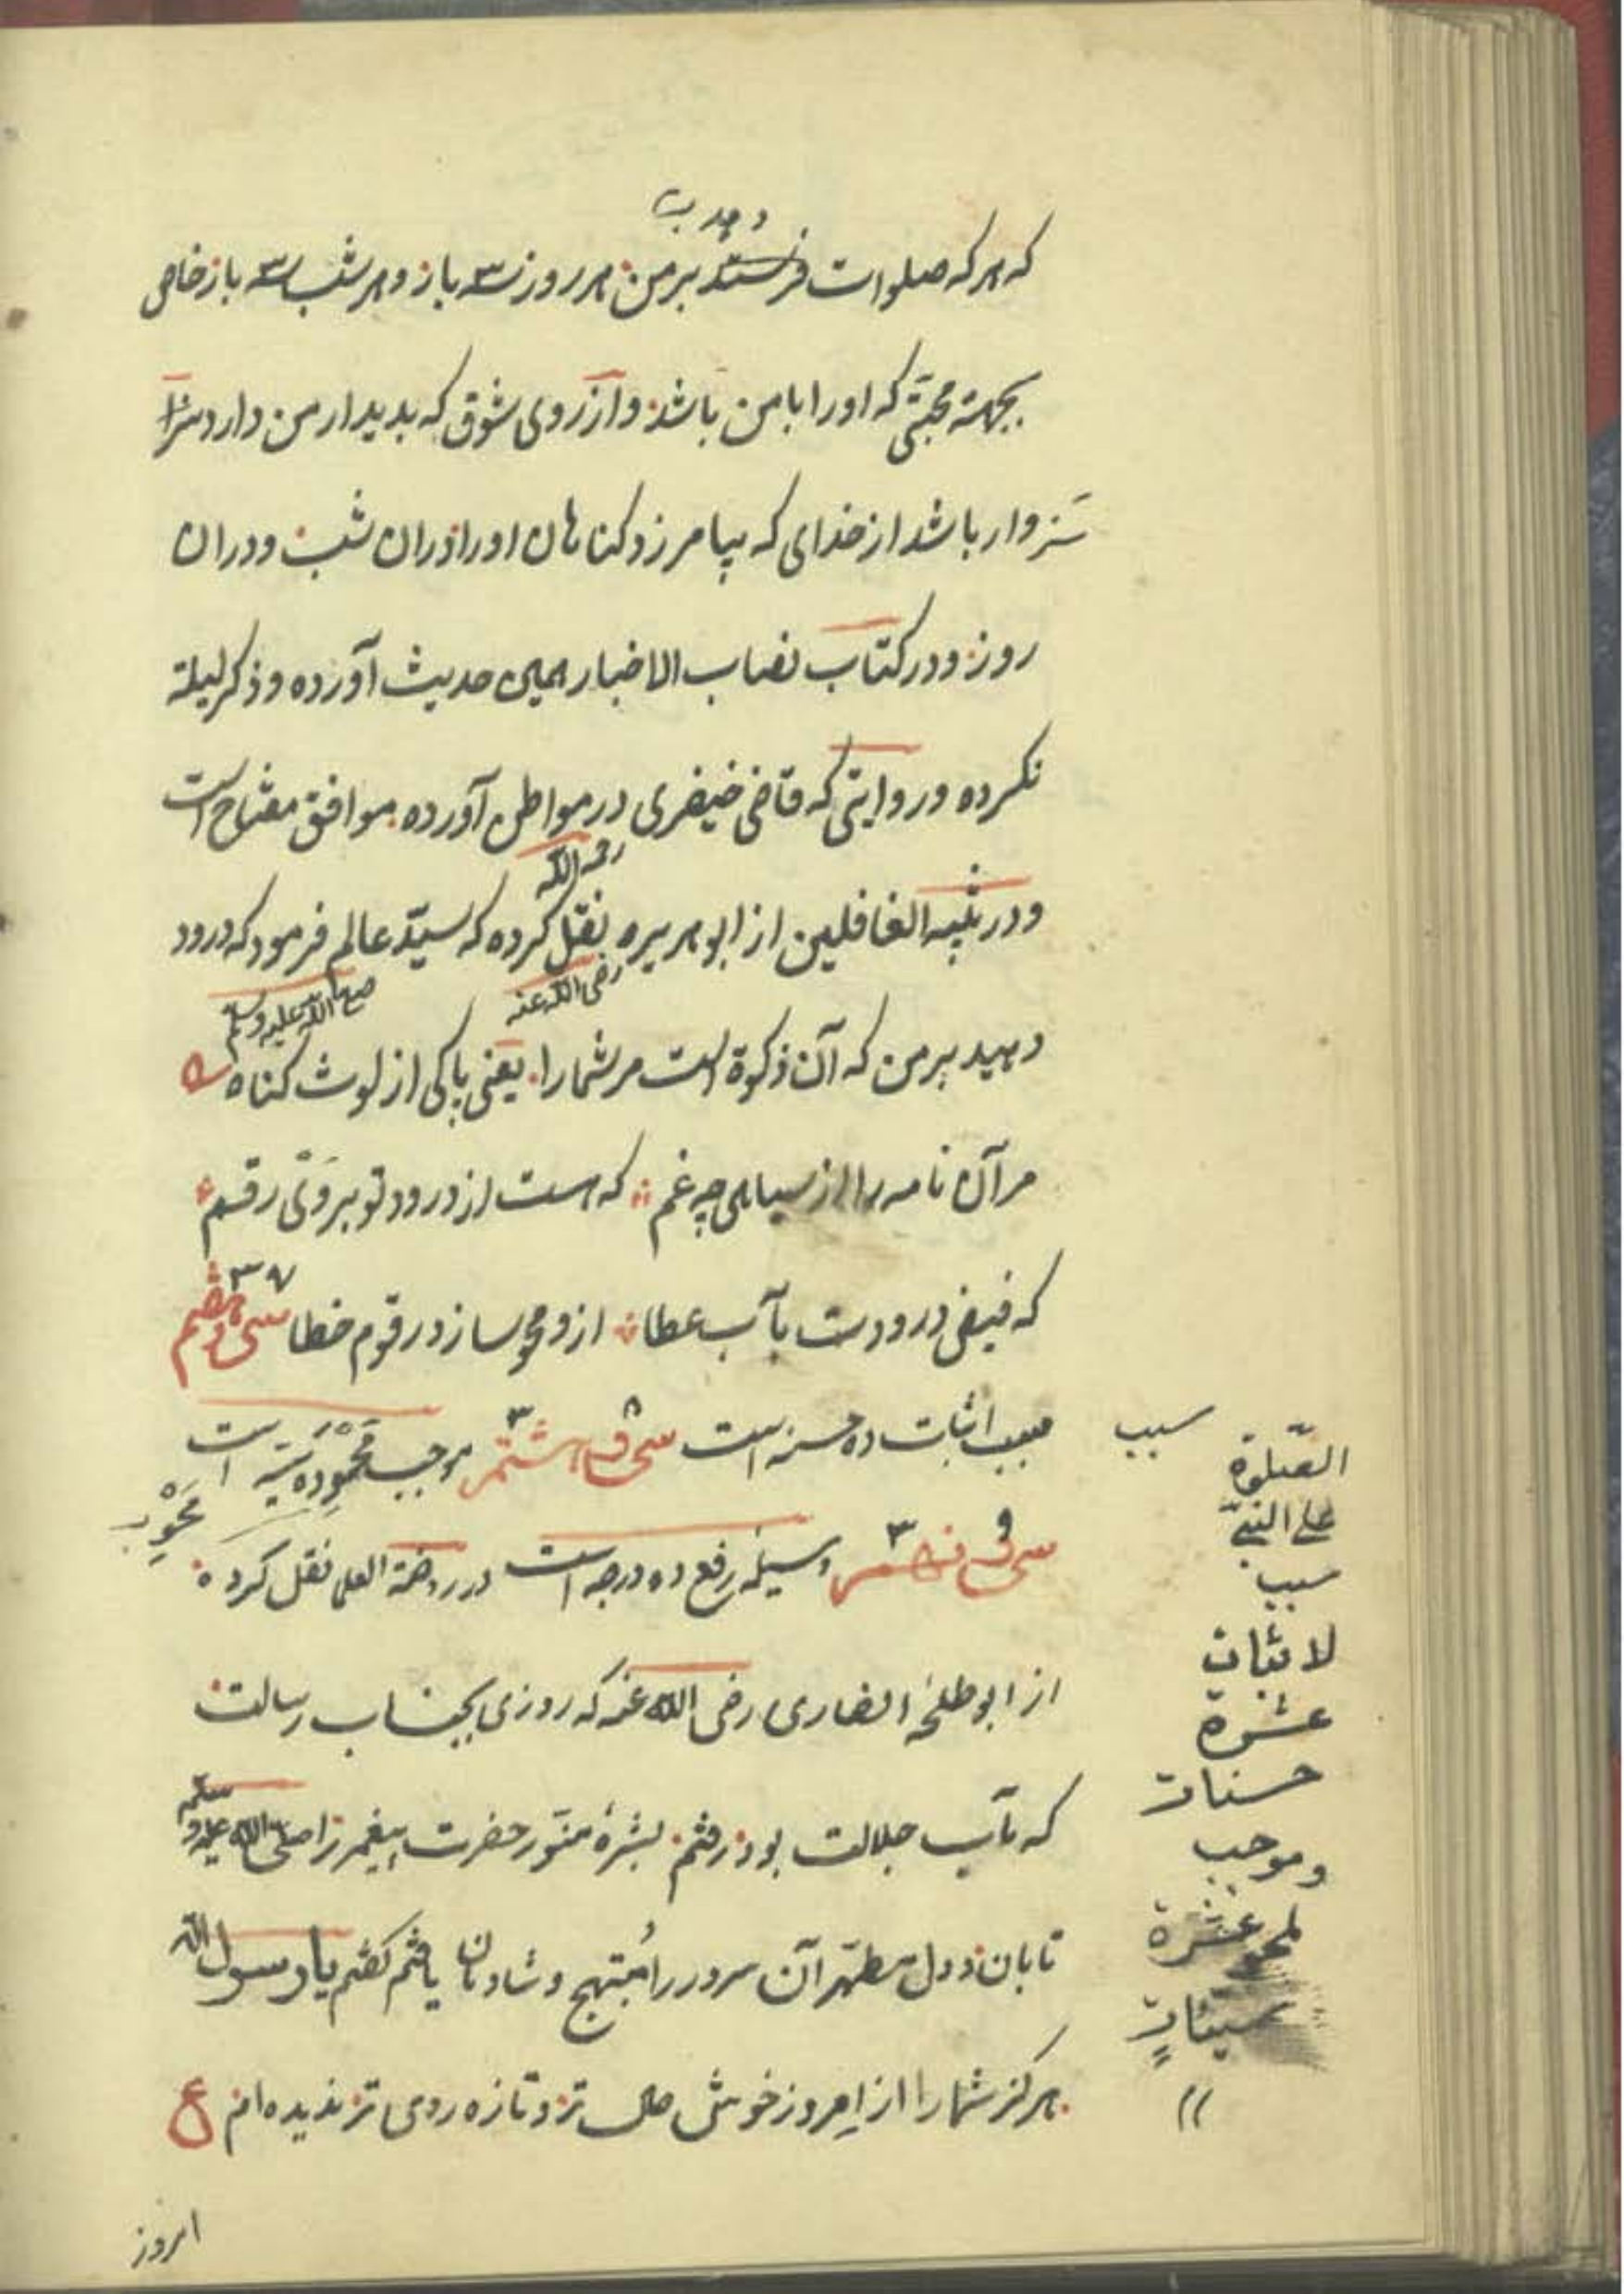 دهد ب
که هرکه صلوات فرستد بر من هر روز سه باز و هر شب سه باز خاص
بجهته محبتی که اورا با من باشد و آرزوی شوق که بدیدار من دارد سزا
سزوار باشد از خدای که بیامرزد کناهان اورا دران شب و دران
روز و در کتاب نصاب الاخبار همین حدیث آورده و ذکر لیلة
نکرده و روایتی که قاضی خیضری در مواطن آورده موافق مفتاح است
رحمه الله
و در تنبیه الغافلین از ابو هریره نقل کرده که سیّد عالم فرمود که درود
رضی الله عنه
صلی الله علیه وسلم
دهید بر من که آن ذکوة است مر شما را یعنی پاکی از لوث کناه
مر آن نامه را از سیاهی چه غم که هست از درود تو بر وی رقم
که فیض درودت بآب عطا ازو محو سازد رقوم خطا سی و هفتم
۳۷
سبب اثبات ده حسنه است سی و هشتم موجب محو ده سیّه است
۳۸
محو ب
سی و نهم وسیله رفع ده درجه است در روضة العلما نقل کرده
۳۹
از ابو طلحۀ انصاری رضی الله عنه که روزی بجناب رسالت
که مآب جلالت بود رفتم بشرۀ منوّر حضرت پیغمبر را صلی الله علیه وسلم
تابان و دل مطهّر آن سرور را مُبتهج و شادمان یافتم کفتم یا رسول الله
هرکز شما را از امروز خوش حال تر و تازه روی تر ندیده ام ع
امروز
سبب
الصّلوة
علی النبیّ
سبب
لاثبات
عشرة
حسنات
وموجب
لمحو عشرة
سیّئاتٍ